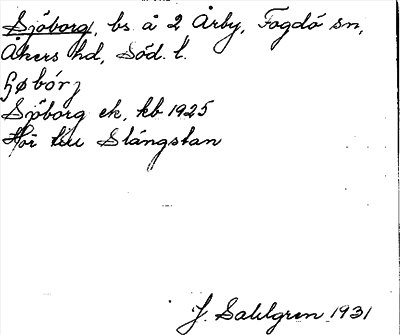 Sjöborg, bs å 2 Årby, Fogdö sn,
Åkers hd, Söd. l.
Sjöborg ek, kb 1925
Hör till Stängstan
J. Sahlgren 1931